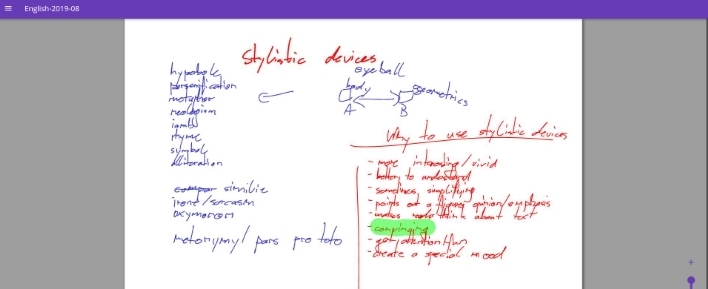 English-2019-08
stylistic devices
eyeball
hyperbole
personification
metaphor
neologism
iamb
rhyme
symbol
alliteration
simile
irony/sarcasm
oxymoron
metonymy/ pars pro toto
body
geometrics
A
B
Why to use stylistic devices
- more interesting/vivid
- better to understand
- sometimes simplifying
- points out a figures opinion/emphasis
- makes reader think about text
- convinging
- get attention/fun
- create a special mood